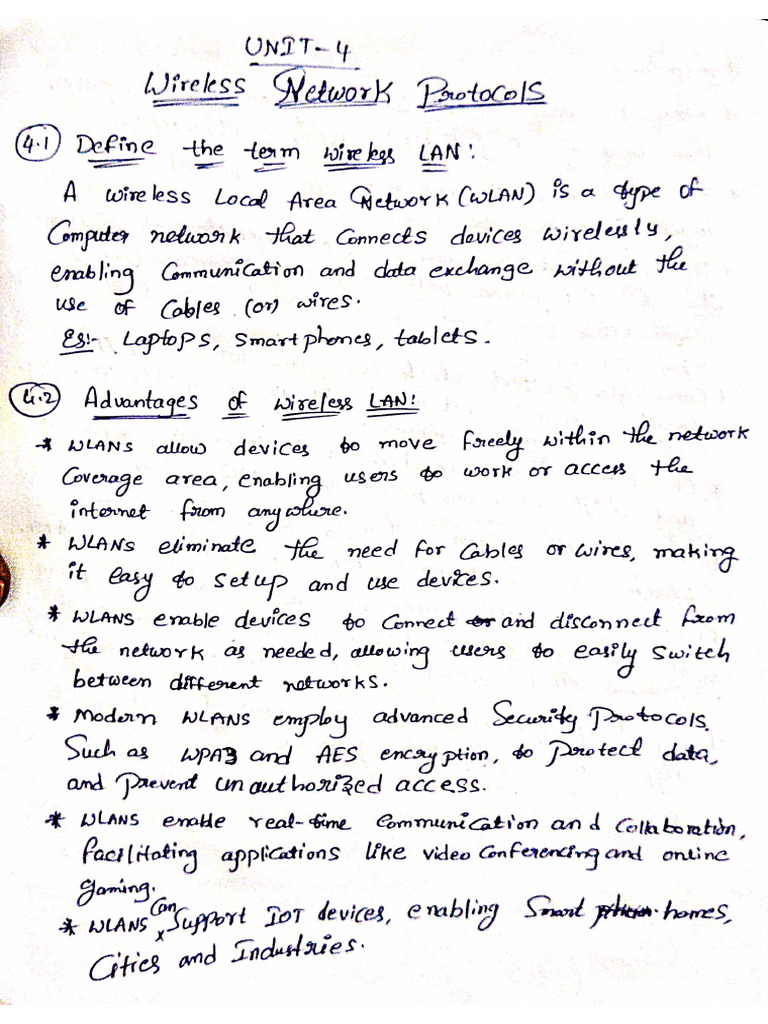 UNIT-4
Wireless Network Protocols
4.1 Define the term wireless LAN:
A wireless Local Area Network (WLAN) is a type of
Computer network that Connects devices wirelessly,
enabling Communication and data exchange without the
use of Cables (or) wires.
Eg:- Laptops, smart phones, tablets.
4.2 Advantages of wireless LAN:
* WLANS allow devices to move freely within the network
Coverage area, enabling users to work or access the
internet from any where.
* WLANs eliminate the need for Cables or wires, making
it easy to setup and use devices.
* WLANS enable devices to Connect and disconnect from
the network as needed, allowing users to easily switch
between different networks.
* Modern WLANS employ advanced Security Protocols.
Such as WPA3 and AES encryption, to Protect data,
and Prevent unauthorized access.
* WLANS enable real-time Communication and Collaboration,
facilitating applications like video Conferencing and online
gaming.
* WLANS Can Support IOT devices, enabling Smart homes,
Cities and Industries.